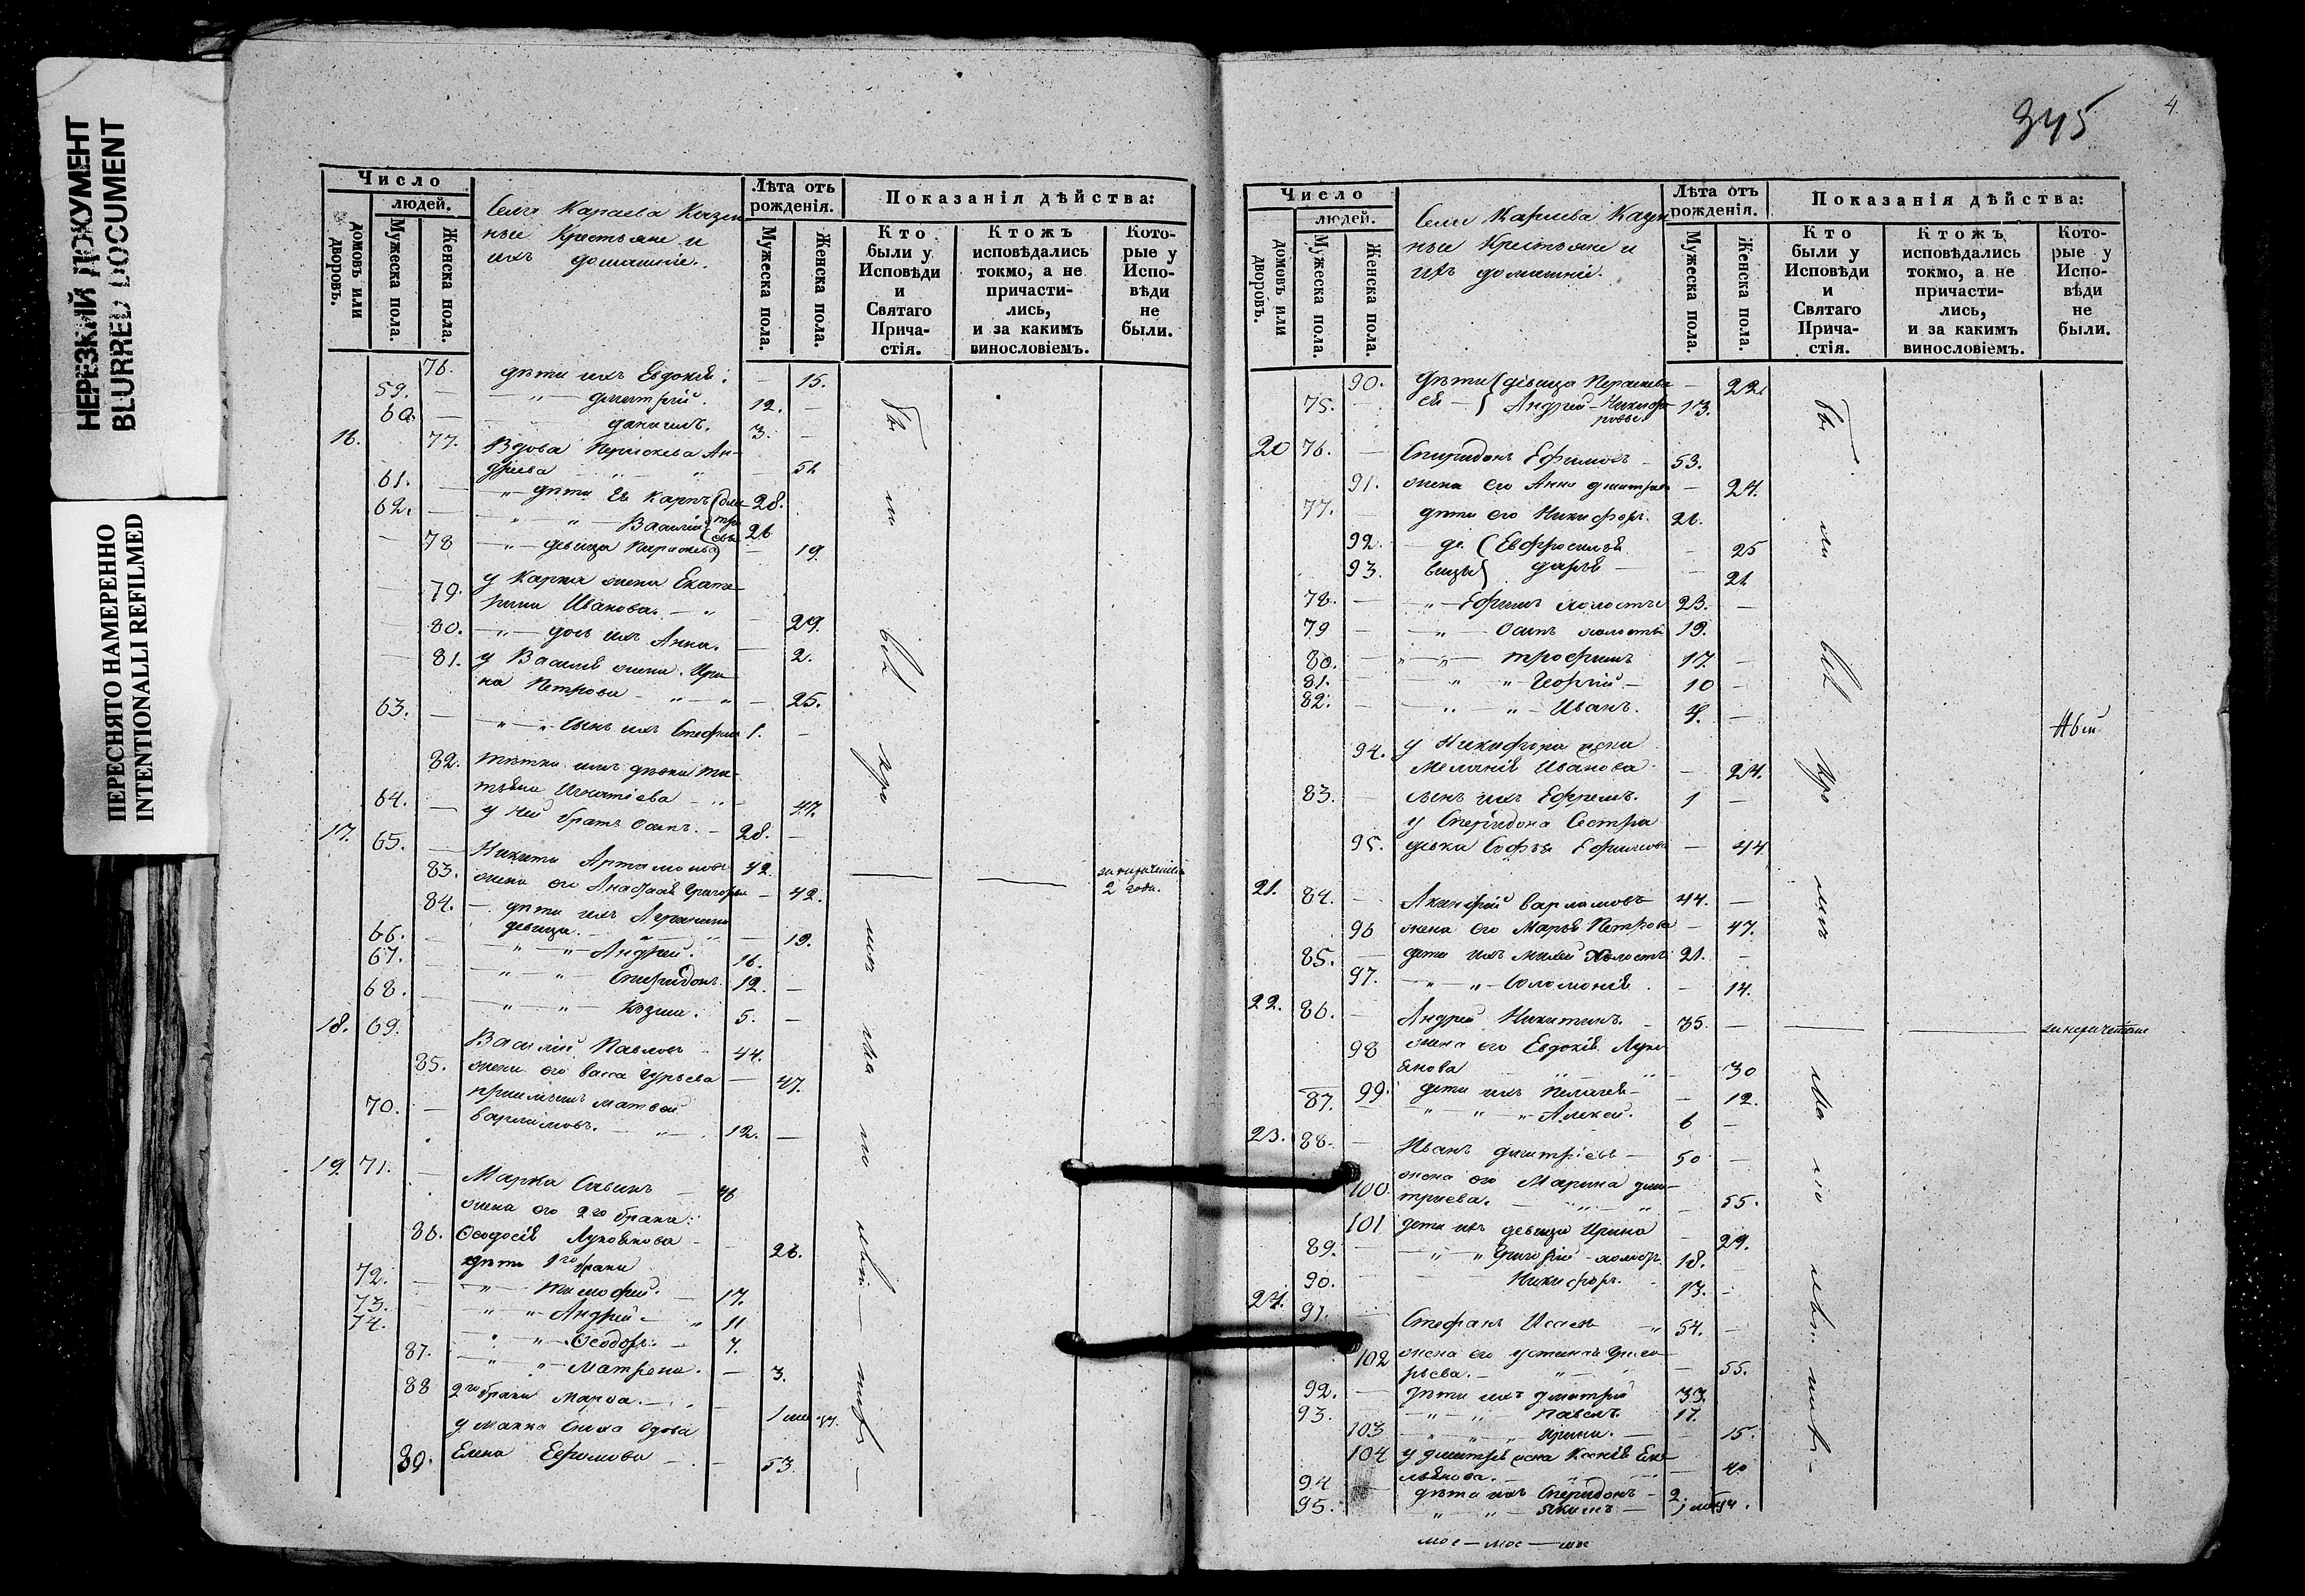 НЕРЕЗКИЙ ДОКУМЕНТ
BLURRED DOCUMENT
ПЕРЕСНЯТО НАМЕРЕННО
INTENTIONALLI REFILMED
Число
людей.
домовъ или дворовъ.
Мужеска пола.
Женска пола.
Села Караева Казен
ные Крестьяне и
ихъ домашніе.
Лѣта отъ рожденія.
Мужеска пола.
Женска пола.
Показанія дѣйства:
Кто были у Исповѣди и Святаго Прича-стія.
Ктожъ исповѣдались токмо, а не причасти-лись, и за какимъ винословіемъ.
Кото-рые у Испо-вѣди не были.
76. дѣти ихъ Евдокія. 15.
59. — " — Димитрій. 12. —
60. — Даніилъ. 3. —
16. 77. Вдова Параскева Ан-
дреева — 51
61. — " — дѣти ея Карпъ 28.
62. — " " — Василій 26
78 — " — девица Параскева — 19.
у Карпа жена Екате
79. рина Иванова. — " 29.
80. — " — дочь ихъ Анна. — 2.
81. у Василія жена Ири
на Петрова — " — " — 25.
63. — " " сынъ ихъ Стефанъ 1. —
82. тѣтка ихъ девка та-
тьяна Игнатіева — 47.
64. — у ней братъ Осипъ. — 28. —
17. 65. — Никита Артамоновъ 42.
83. жена его Анастасія Григорьева — 42.
2 года.
84. — дѣти ихъ Агрипина
девица. — " — 19.
66. — " — " — Андрей. 16.
67. — " " — Спиридонъ. 12. —
68. — " — " — Козма. 5. —
18. 69. Василій Павловъ 44.
85. жена его Васса Гурьева — 47.
70. — приемышъ Матвей
Варламовъ. — " — 12. —
19. 71. — Марка Савинъ — 46
жена его 2го брака:
86. Ѳеодосія Лукоянова — 26.
дѣти 1го брака
72. — " — Тимофей. — 17.
73. — " — " — Андрей — " 11
74. — " — Ѳеодоръ — 7.
87. — " " — Матрена. — 3.
88 2го брака Марѳа. —
у Марка Сноха вдова
89. Елена Ефимова — 53.
345
4
Число
людей.
домовъ или дворовъ.
Мужеска пола.
Женска пола.
Села Караева Казен
ные Крестьяне и
ихъ домашніе.
Лѣта отъ рожденія.
Мужеска пола.
Женска пола.
Показанія дѣйства:
Кто были у Исповѣди и Святаго Прича-стія.
Ктожъ исповѣдались токмо, а не причасти-лись, и за какимъ винословіемъ.
Кото-рые у Испо-вѣди не были.
90. дѣти девица Параскева — 22.
75. — ея — Андрей — Никифо
ровы 13.
20 76. — Спиридонъ Ефимовъ — 53.
91. жена его Анна Дмитріева — 24.
77. — дѣти его Никифоръ. 26.
92. — де Евфросинія — 25
93. вицы Дарья — 21
78. — " — Ефимъ холостъ 23. —
79 — " — Осипъ холостъ 19.
80. — " " — Трофимъ 17. —
81. — " " — Георгій — 10 —
82. — " — " — Иванъ. 4. —
94. у Никифора жена
Меланія Иванова — 24.
83. — сынъ ихъ Ефремъ. 1 —
у Спиридона Сестра
95. девка Софья Ефимова — 44
21. 84. — Акинфій Варламовъ 44. —
96 жена его Марья Петрова — 47.
85. — дети ихъ Михей холостъ 21. —
97. — " " — Соломонія — 14.
22. 86. — Андрей Никитинъ. — 35. —
98 жена его Евдокія Луко
янова — " " — 30
99. дети ихъ Пелагея — — 12.
87. — " — " — Алексей. 6 —
23. 88. — Иванъ Димитріевъ — 50 —
100. жена его Марина Дми-
триева. — 55.
101 дети ихъ девица Ирина — 29.
89. — " — " Григорій — холостъ 18. —
90. — Никифоръ. 13. —
24. 91. — Стефанъ Исаевъ " 54. —
102 жена его Устинья Григо
рьева. — " — 55.
92. — дѣти ихъ Дмитрій 33.
93. — " — " — Павелъ. 17.
103 — " — " — Ирина. — 15.
104 у Дмитрія жена Ксенія Еме
льянова. — 40
94 — дѣти ихъ Спиридонъ — 2.
95. " — " — Якимъ —